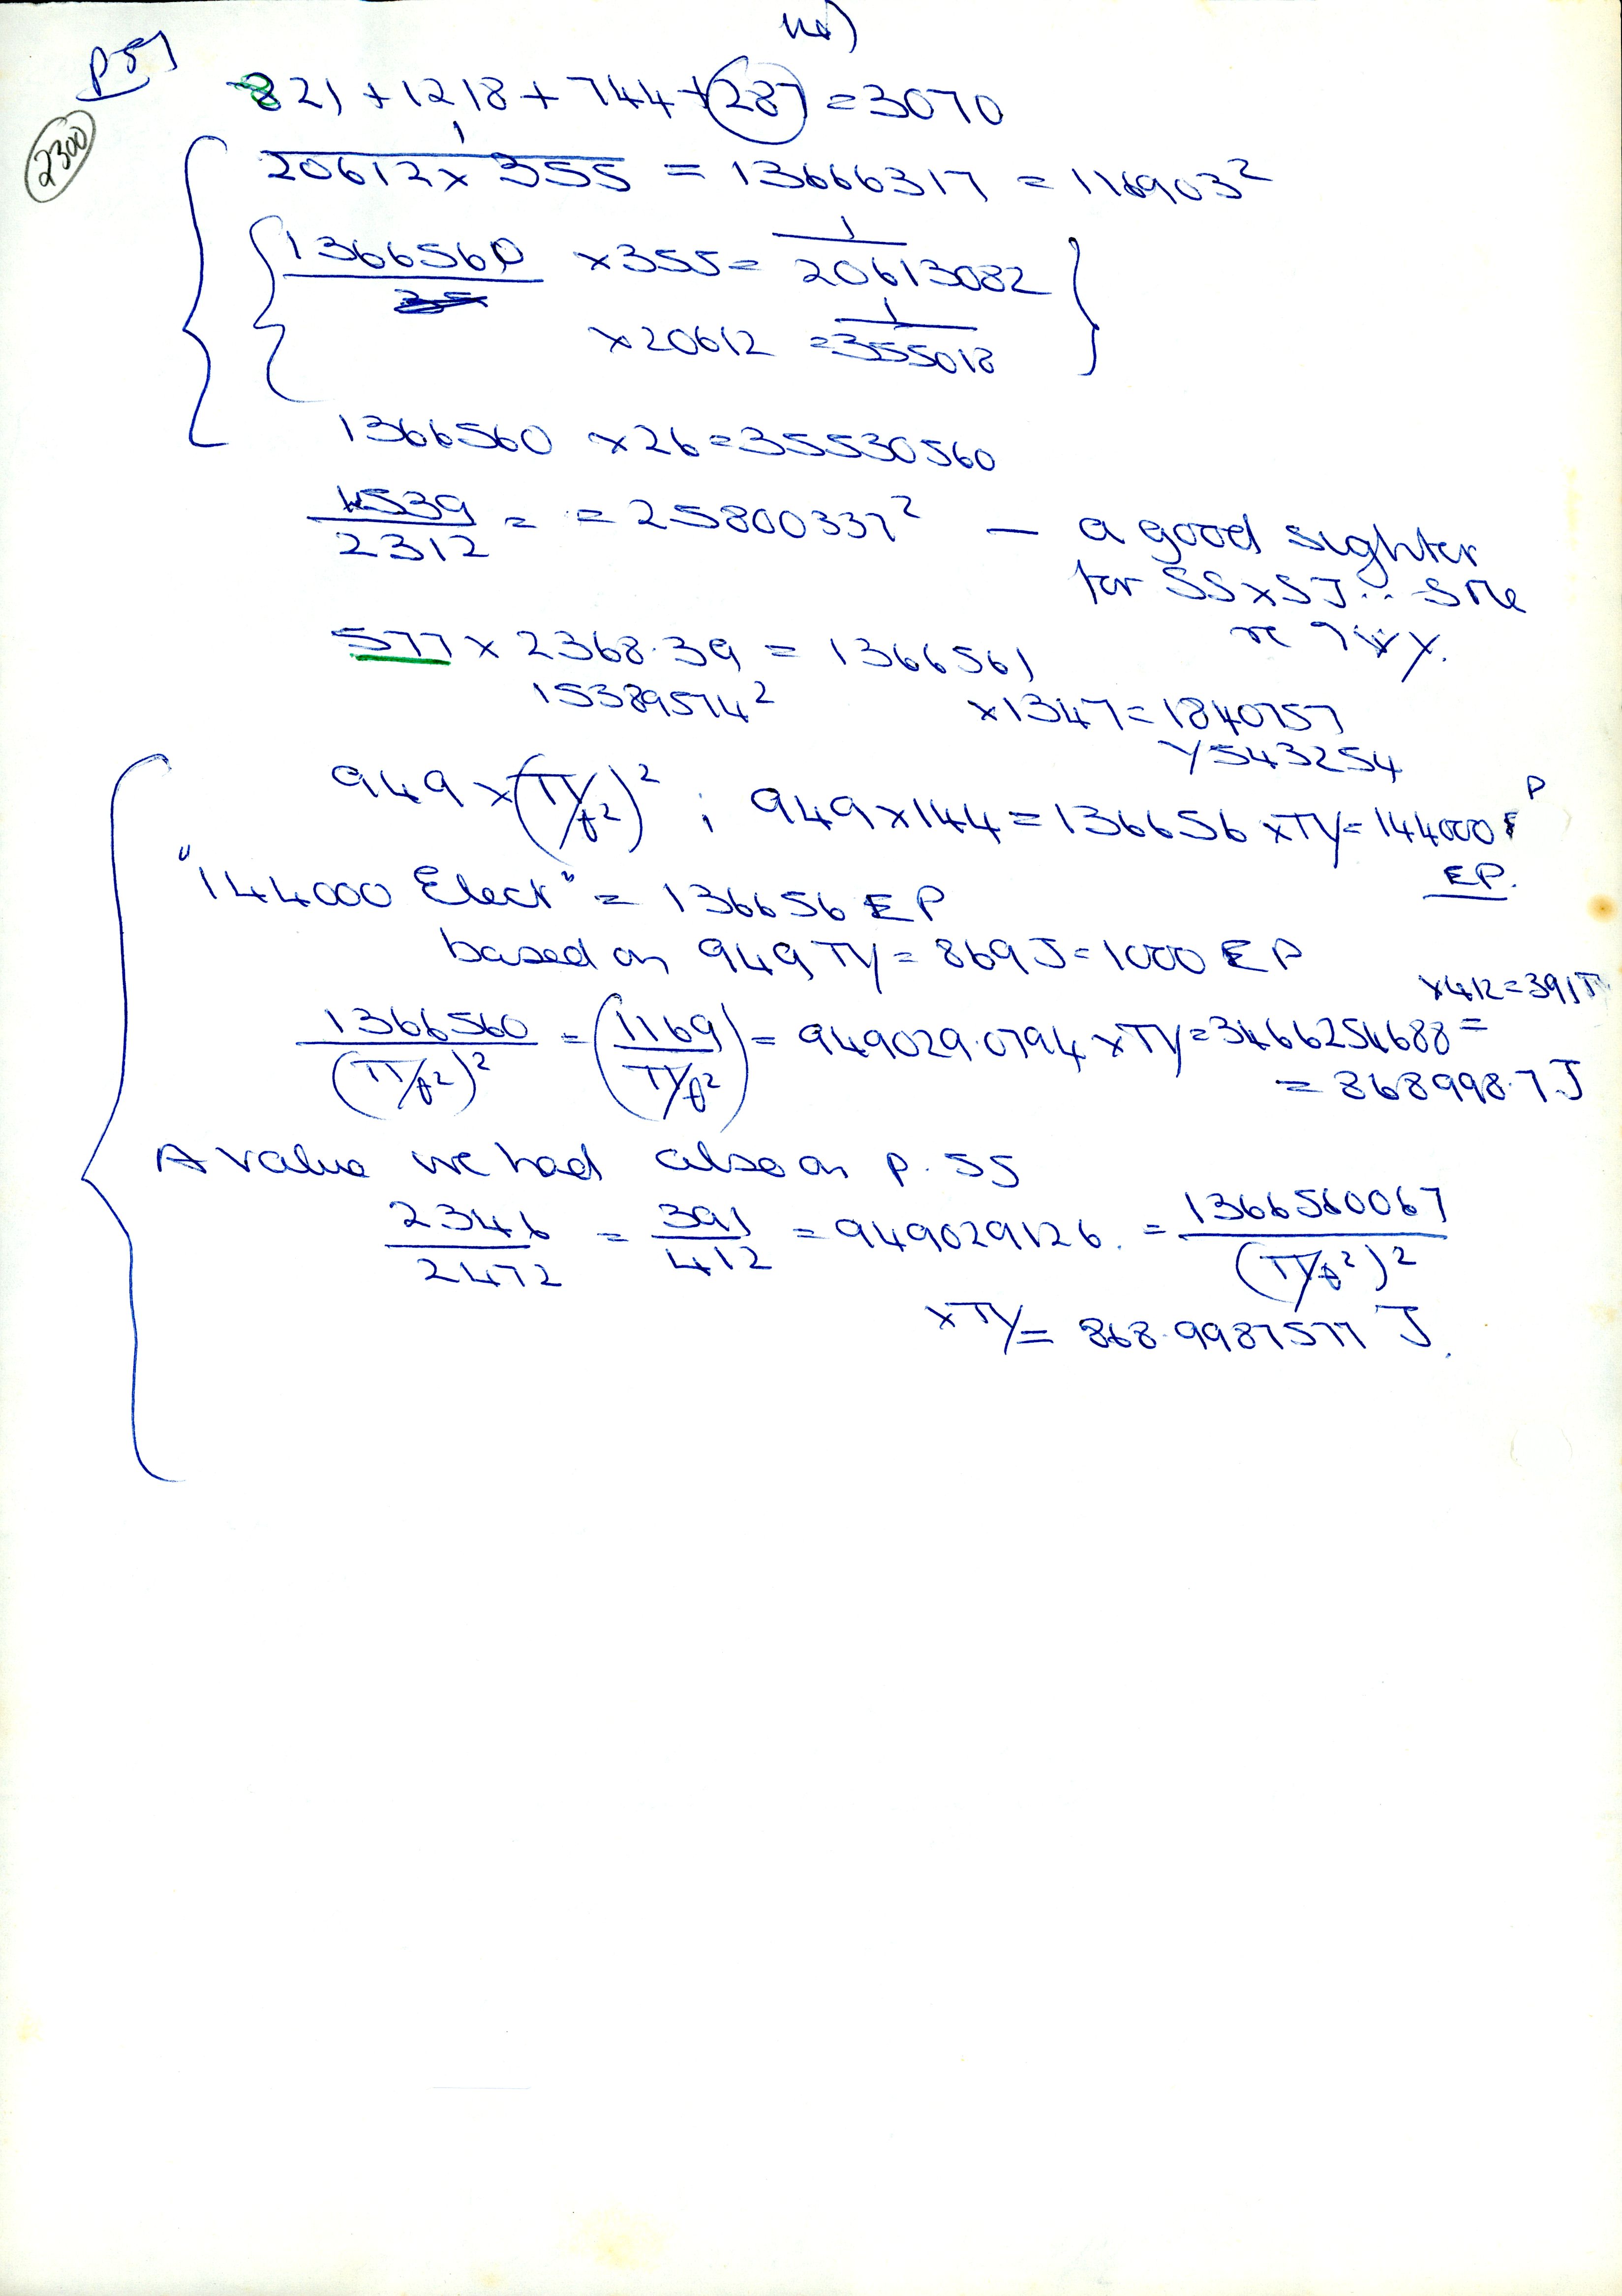 p 57
2300
821 + 1218 + 744 + 287 = 3070
1
20612 x 355 = 13666317 = 116903²
1366560 x 355 = 1
20613082
x 20612 = 1
355018
1366560 x 26 = 35530560
4539
2312 = = 25800337² — a good sighter
for SS x SJ
577 x 2368.39 = 1366561
15389574²
x 1347 = 1840757
√543254
949 x (TY/t²)² ; 949 x 144 = 136656 x TY = 144000 P
EP.
"144000 Elect" = 136656 EP
based on 949 TY = 869 J = 1000 EP
x 412 = 391 T
1366560
(TY/t²)² = (1169
TY/t²) = 949029.0794 x TY = 3466254688 =
= 868998.7 J
A value we had also on p. 55
2346
2472 = 391
412 = 949029126. = 1366560067
(TY/t²)²
x TY = 868.9987577 J.